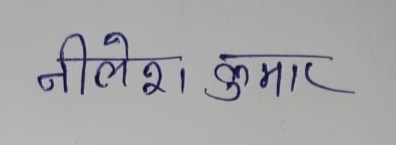 नीलेश कुमार